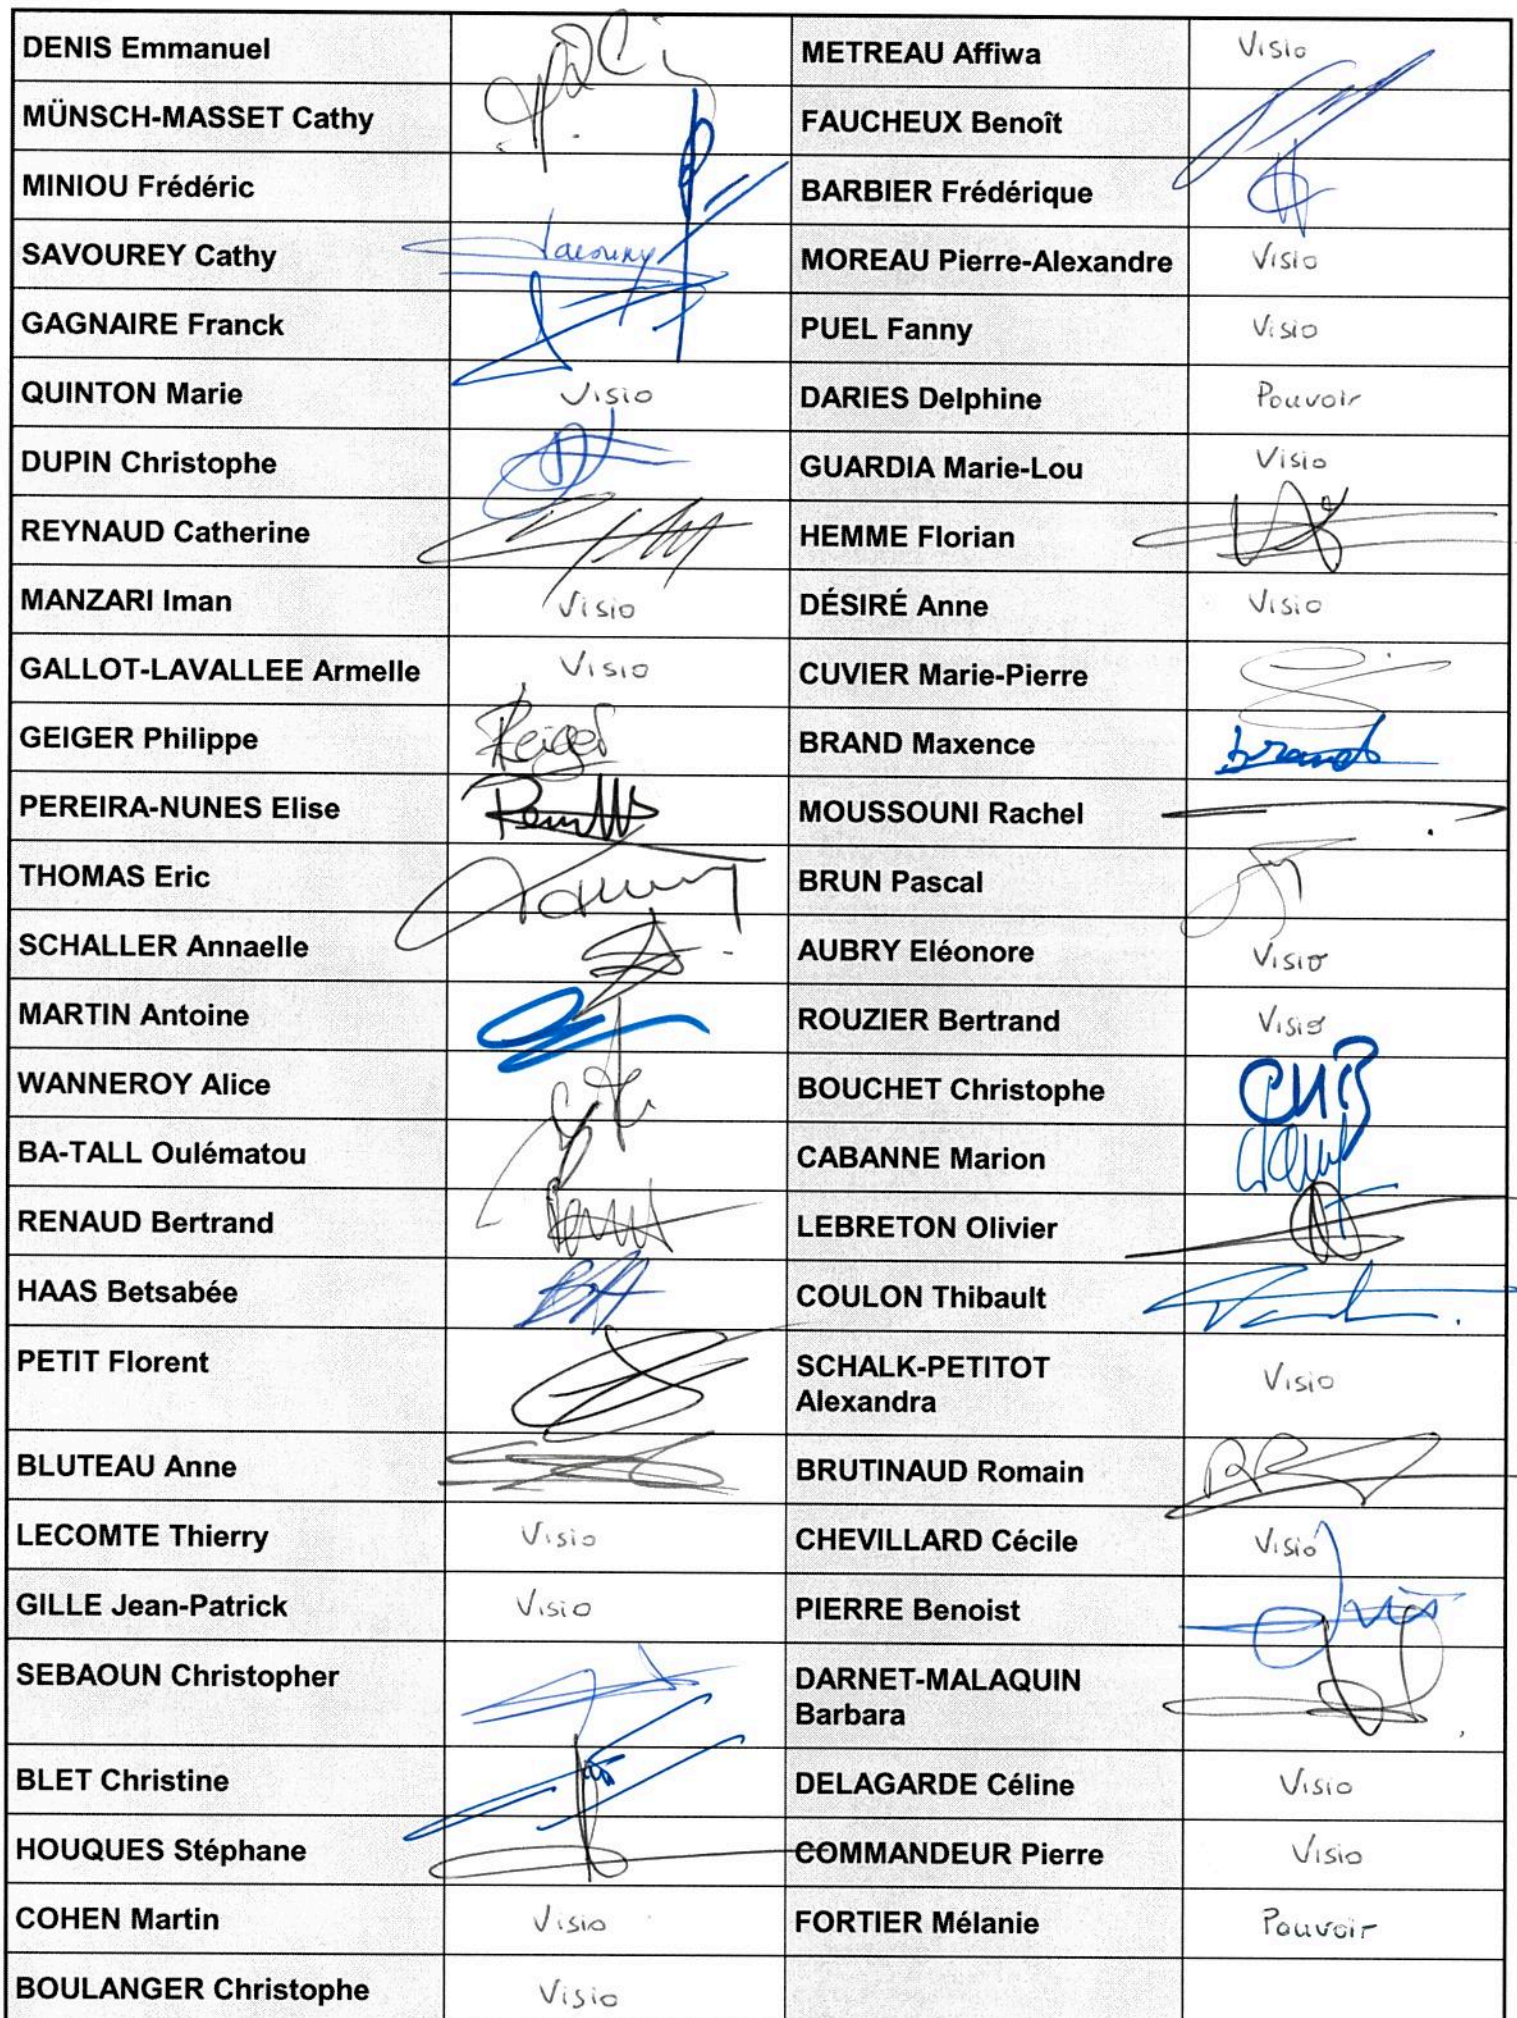 DENIS Emmanuel
METREAU Affiwa Visio
MÜNSCH-MASSET Cathy
FAUCHEUX Benoît
MINIOU Frédéric
BARBIER Frédérique
SAVOUREY Cathy
MOREAU Pierre-Alexandre Visio
GAGNAIRE Franck
PUEL Fanny Visio
QUINTON Marie Visio
DARIES Delphine Pouvoir
DUPIN Christophe
GUARDIA Marie-Lou Visio
REYNAUD Catherine
HEMME Florian
MANZARI Iman Visio
DÉSIRÉ Anne Visio
GALLOT-LAVALLEE Armelle Visio
CUVIER Marie-Pierre
GEIGER Philippe
BRAND Maxence brand
PEREIRA-NUNES Elise
MOUSSOUNI Rachel
THOMAS Eric
BRUN Pascal
SCHALLER Annaelle
AUBRY Eléonore Visio
MARTIN Antoine
ROUZIER Bertrand Visio
WANNEROY Alice
BOUCHET Christophe
BA-TALL Oulématou
CABANNE Marion
RENAUD Bertrand
LEBRETON Olivier
HAAS Betsabée
COULON Thibault
PETIT Florent
SCHALK-PETITOT
Alexandra Visio
BLUTEAU Anne
BRUTINAUD Romain
LECOMTE Thierry Visio
CHEVILLARD Cécile Visio
GILLE Jean-Patrick Visio
PIERRE Benoist
SEBAOUN Christopher
DARNET-MALAQUIN
Barbara
BLET Christine
DELAGARDE Céline Visio
HOUQUES Stéphane
COMMANDEUR Pierre Visio
COHEN Martin Visio
FORTIER Mélanie Pouvoir
BOULANGER Christophe Visio